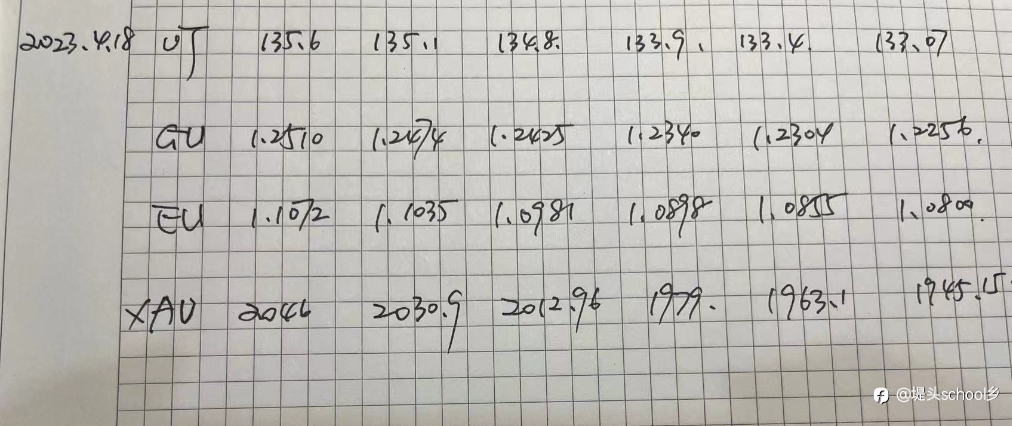 2023.4.18 UJ 135.6 135.1 134.8. 133.9. 133.4. 133.07
GU 1.2510 1.2474 1.2425 1.2340 1.2304 1.2256.
EU 1.1072 1.1035 1.0981 1.0898 1.0855 1.0800.
XAU 2046 2030.9 2012.96 1979. 1963.1 1945.15
@堤头school乡